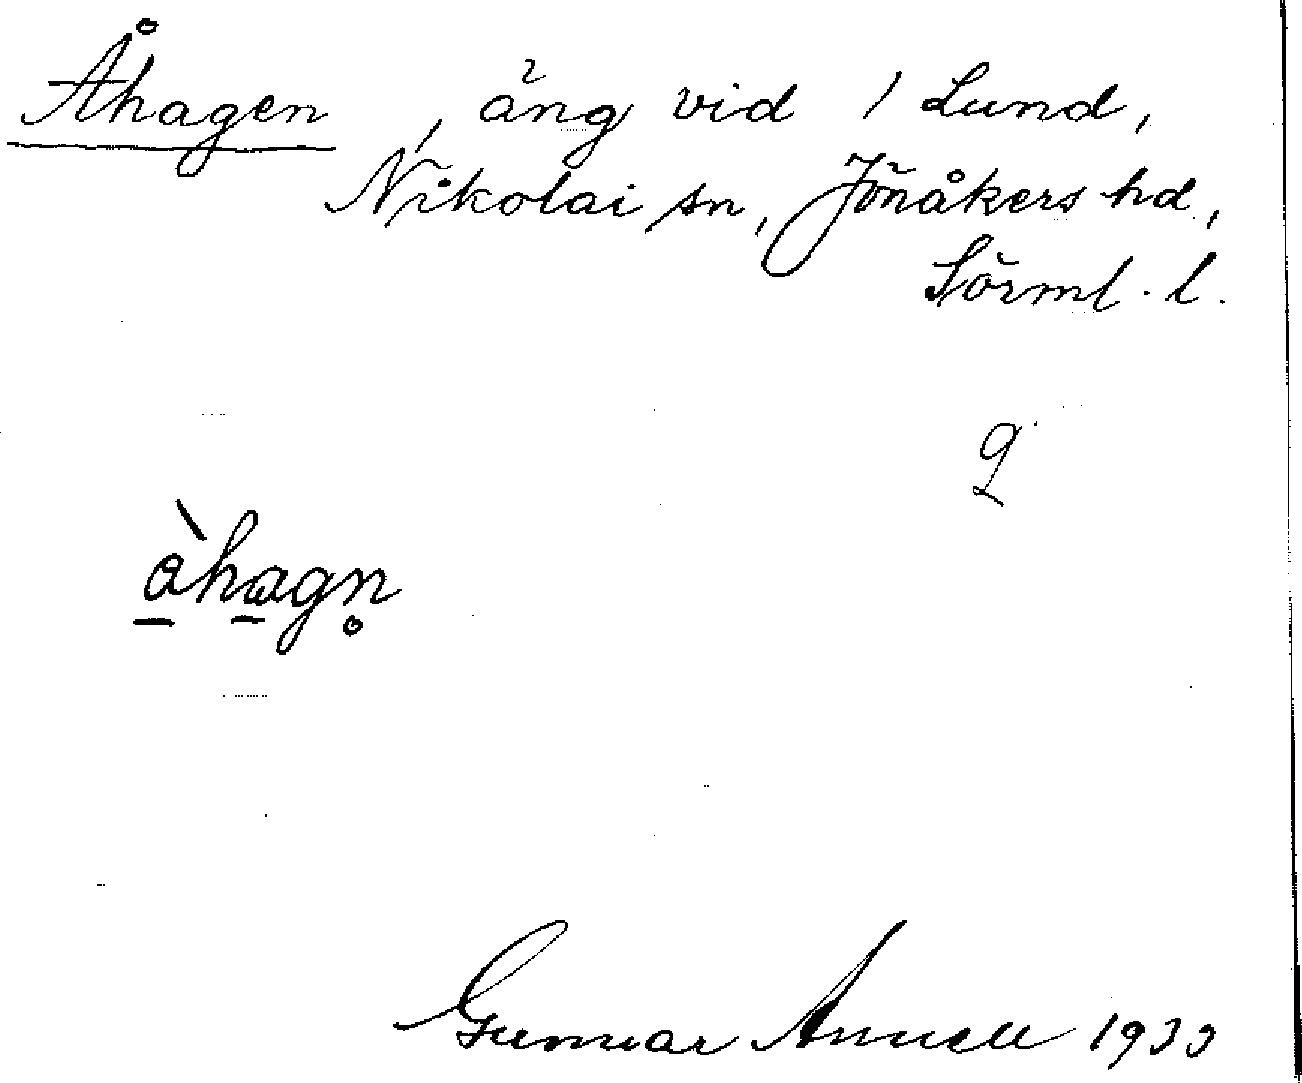 Åhagen, äng vid 1 Lund,
Nikolai sn, Jönåkers hd,
Sörml. l.
àhagn̥
Gunnar Annell 1933